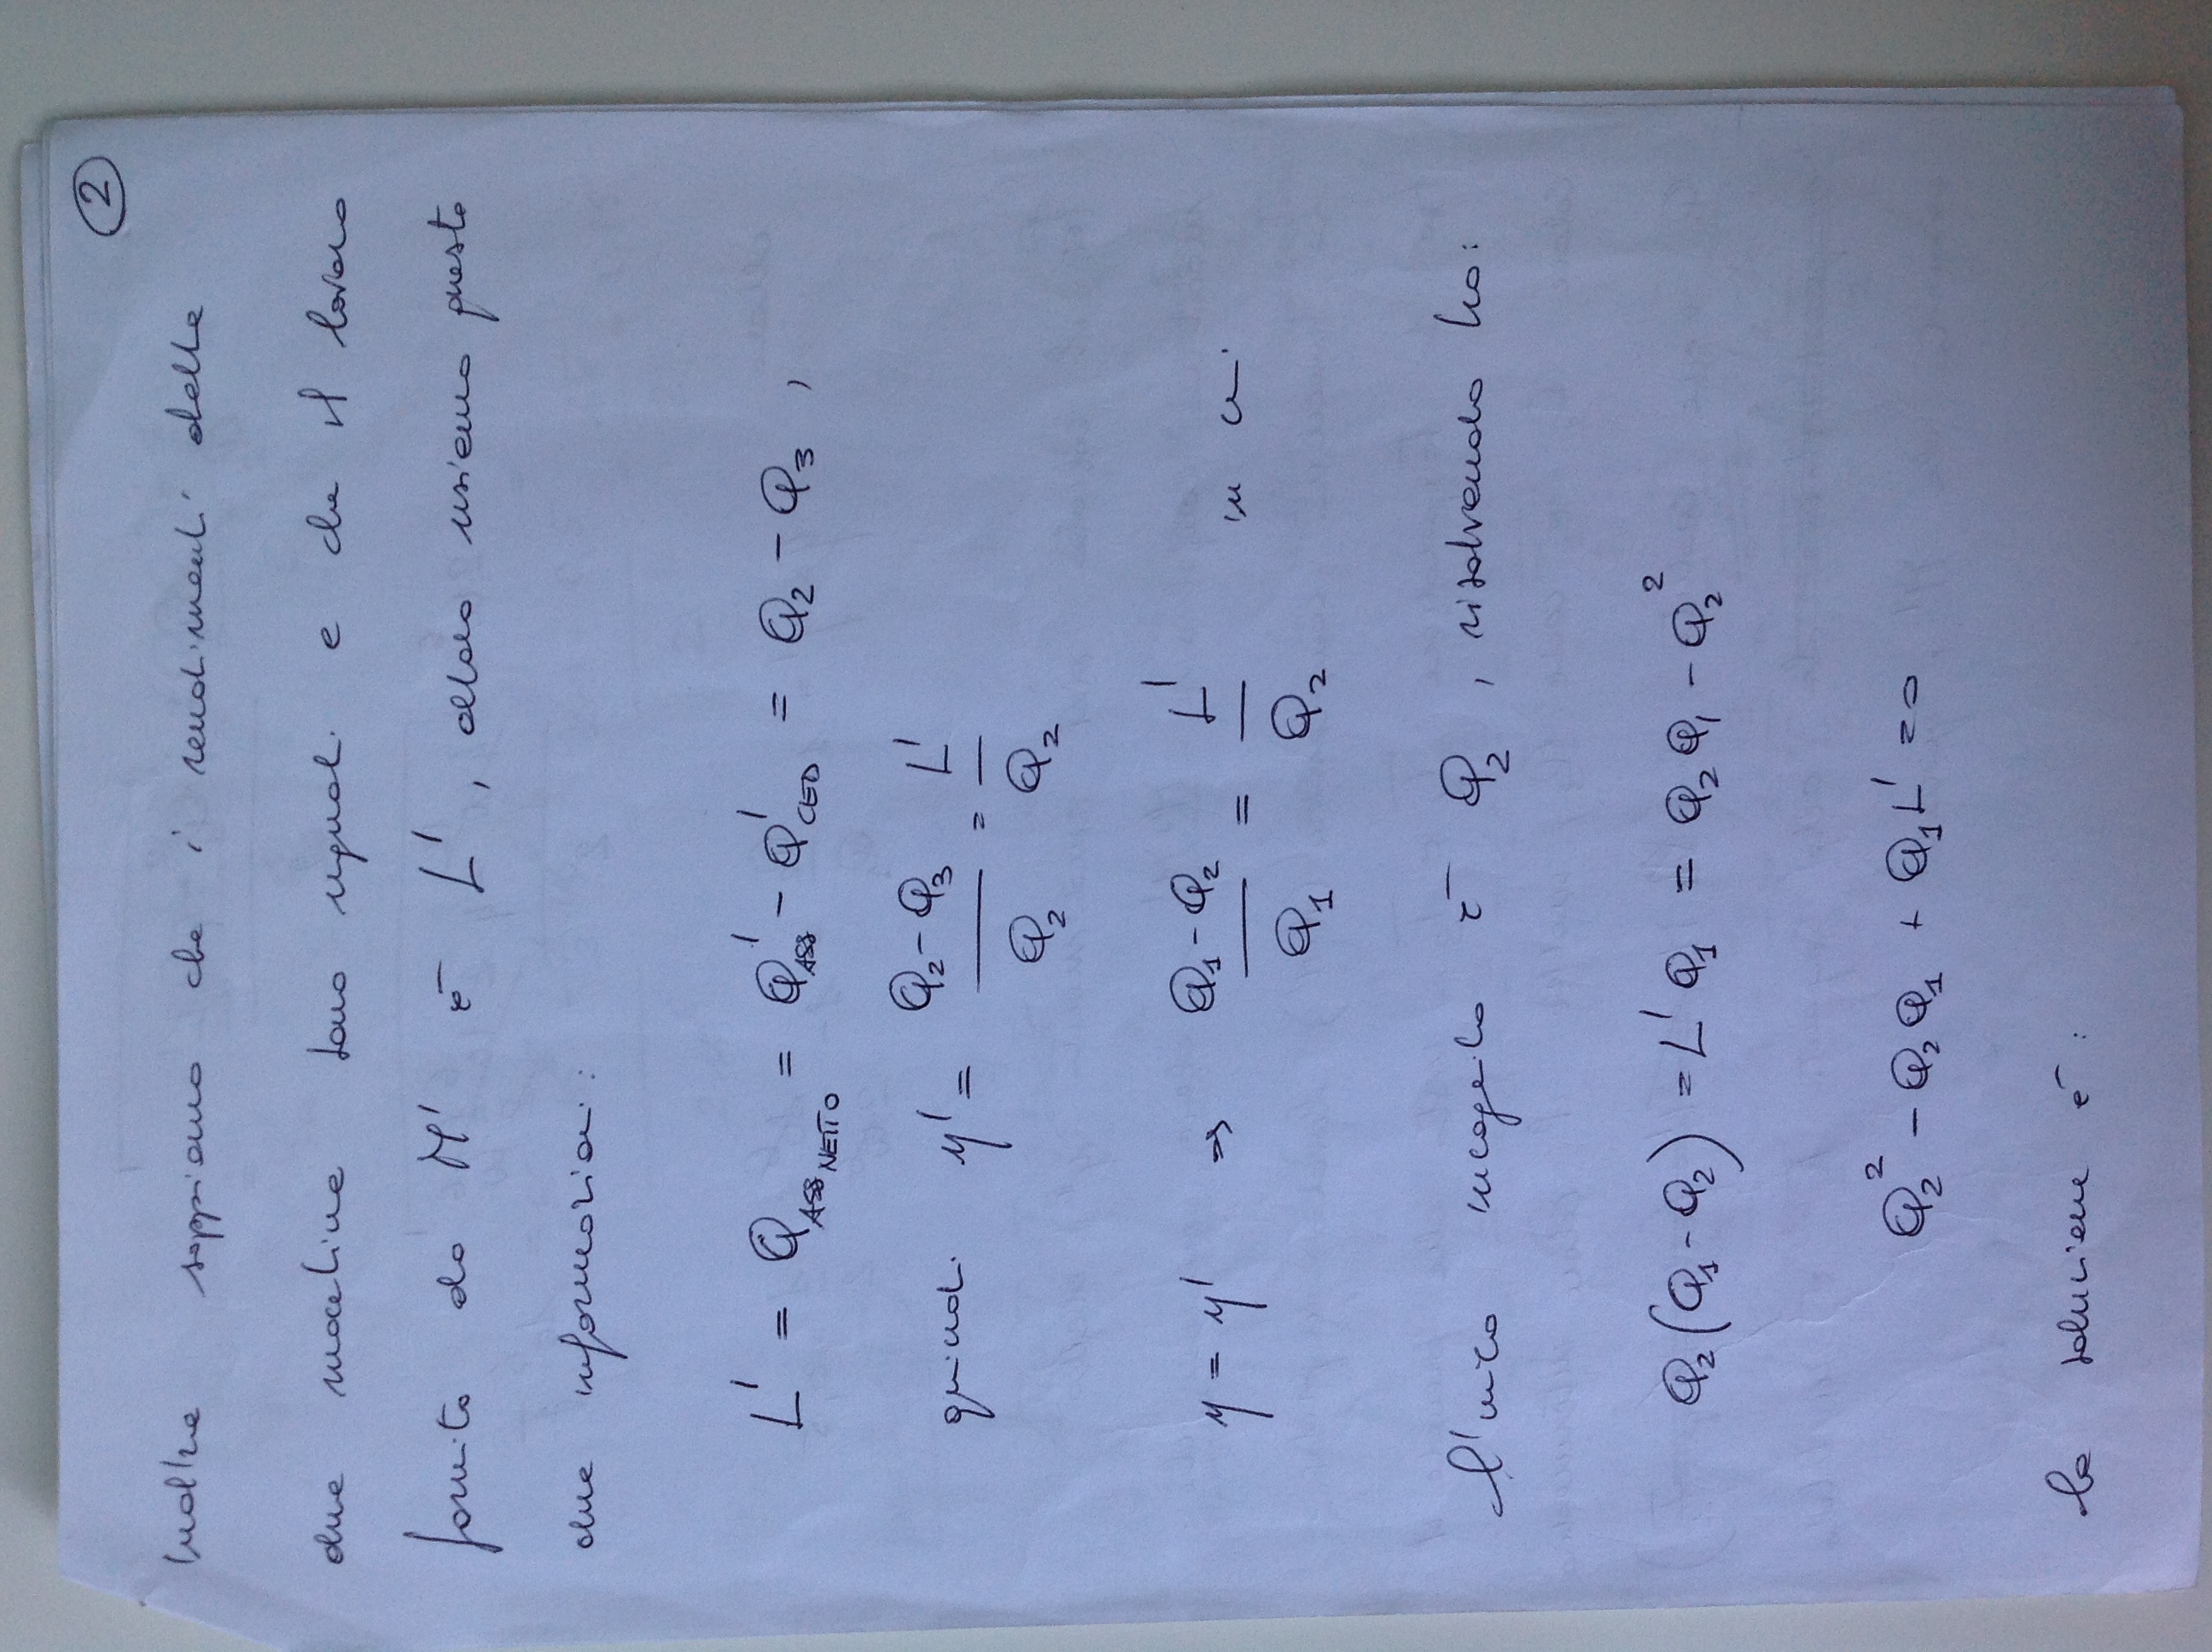 2
Inoltre sappiamo che i rendimenti delle
due macchine sono uguali e che il lavoro
fornito da M' è L', allora usiamo queste
due informazioni:
L' = Q_ASS NETTO = Q'_ASS - Q'_CED = Q₂ - Q₃ ,
quindi η' = (Q₂ - Q₃)/Q₂ = L'/Q₂
η = η' ⇒ (Q₁ - Q₂)/Q₁ = L'/Q₂ in cui
l'unica incognita è Q₂ , risolvendo ho:
Q₂(Q₁ - Q₂) = L' Q₁ = Q₂Q₁ - Q₂²
Q₂² - Q₂Q₁ + Q₁L' = 0
la soluzione è :